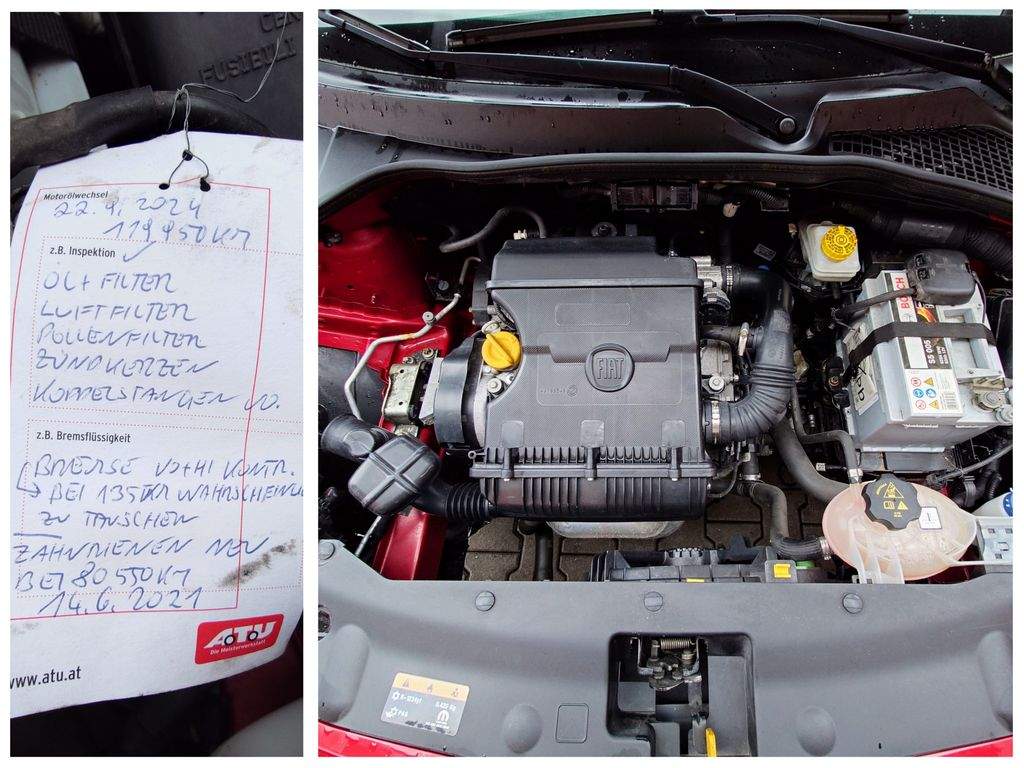 CEN
FUSIBILI
Motorölwechsel
22.9.2024
119950KM
z.B. Inspektion
ÖL+FILTER
LUFTFILTER
POLLENFILTER
ZÜNDKERZEN
KOPPELSTANGEN VO.
z.B. Bremsflüssigkeit
BREMSE VO+HI KONTR.
BEI 135TKM
ZU TAUSCHEN
ZAHNRIEMEN NEU
BEI 80550KM
14.6.2021
ATU
Die Meisterwerkstatt
www.atu.at
FIAT
BOSCH
S5 005